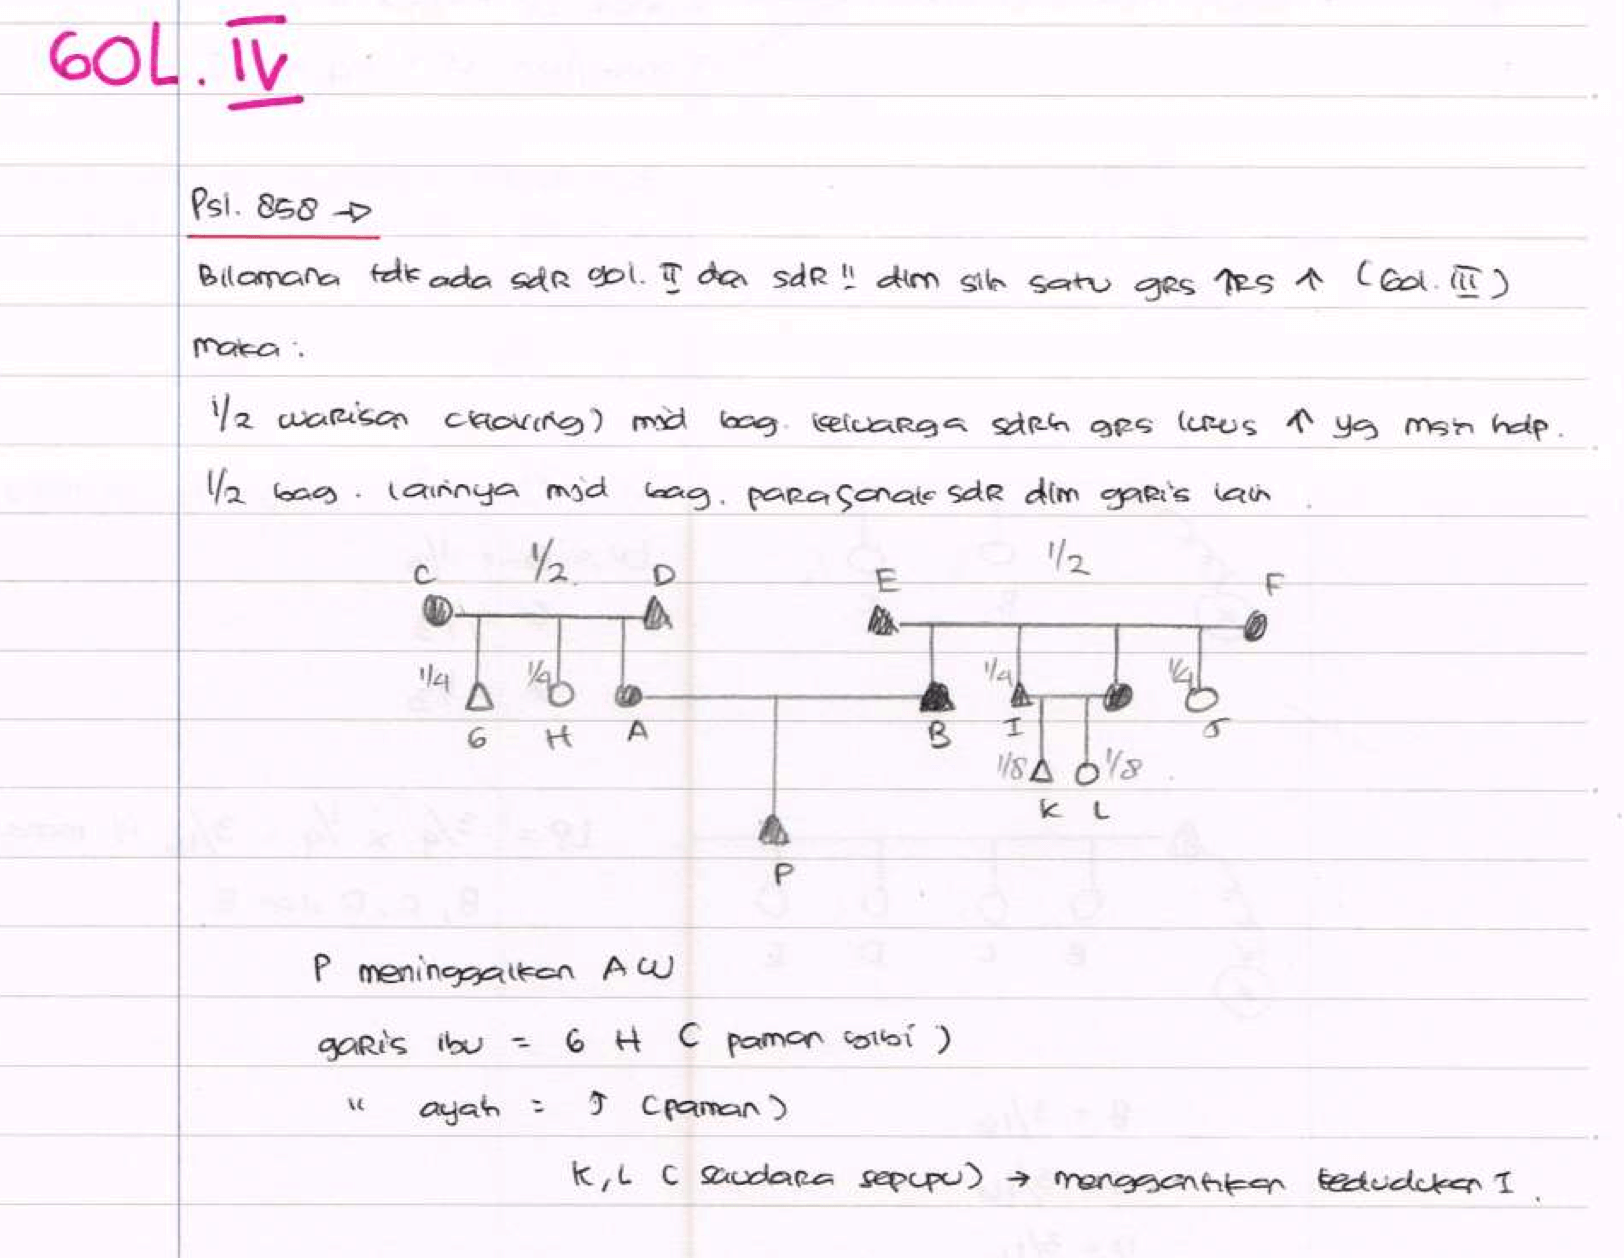 GOL. IV
Psl. 858 →
Bilamana tdk ada sdR gol. II dan sdR" dlm slh satu gRs ↑RS ↑ (Gol. III)
maka :
1/2 warisan (kloving) mjd bag. keluarga sdRh gRs lurus ↑ yg msh hdp.
1/2 bag. lainnya mjd bag. para sanak sdR dlm garis lain.
C 1/2 D E 1/2 F
1/4 1/4 1/4 1/4
G H A B I J
1/8 1/8
K L
P
P meninggalkan AW
garis ibu = G H ( paman bibi )
" ayah = J (paman)
K, L ( saudara sepupu) → menggantikan kedudukan I.